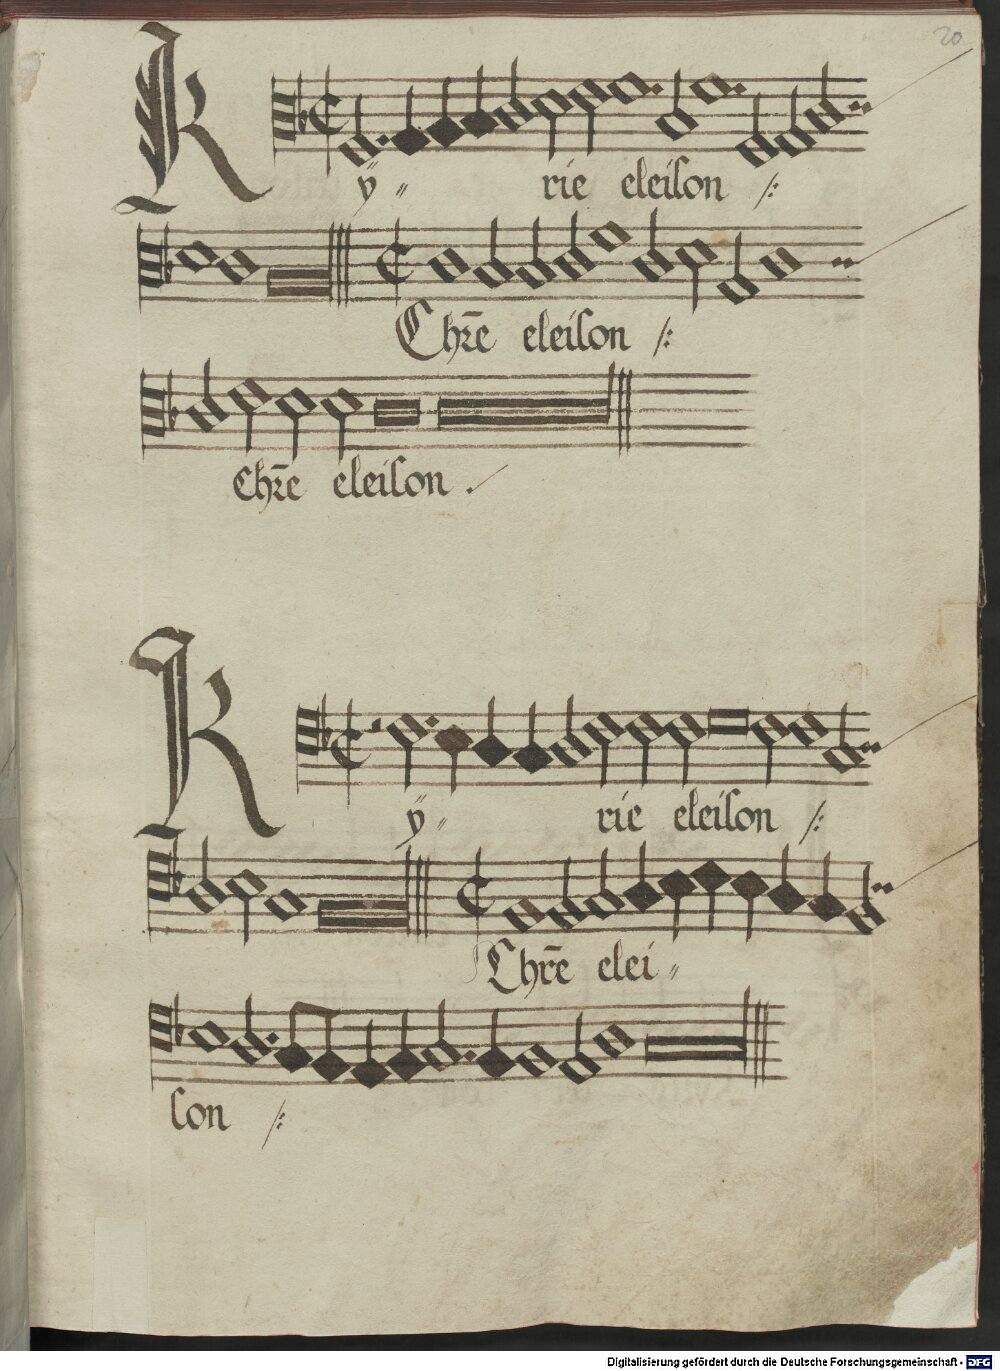 20
Kÿ〃 rie eleiſon :/:
Chr̄e eleiſon :/:
Chr̄e eleiſon
Kÿ〃 rie eleiſon :/:
Chr̄e elei〃
ſon :/:
Digitalisierung gefördert durch die Deutsche Forschungsgemeinschaft - DFG